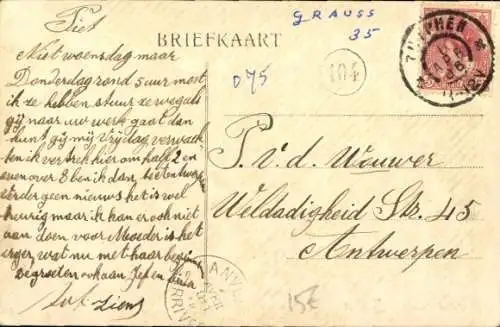 Piet
Niet woensdag maar
Donderdag rond 5 uur most
ik ze hebben stuur ze wegals
gij naar uw werk gaat dan
kunt gij mij Vrijdag verwach
ben ik vertrek hier om half 2 en
even over 8 ben ik dan, te Antwerpen
verder geen nieuws het is wel
treurig maar ik kan er ook niet
aan doen voor Moeder is het
erger, wat nu met haar
begroeten ook aan Jef en
tot Ziens
BRIEFKAART
GRAUSS
35
075
104
ZUTPHEN
P. v. d. Wouwer
Weldadigheid Str. 45
Antwerpen
15E